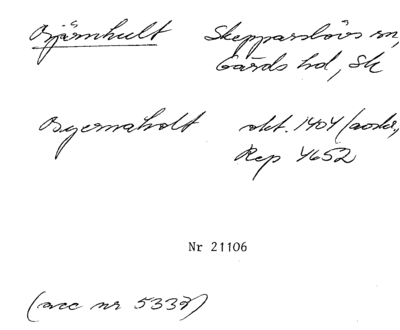 Björnhult Skepparslövs sn,
Gärds hd, Sk
Byernaholt okt. 1404 (avskr.,
Rep 4652
Nr 21106
(acc nr 5332)